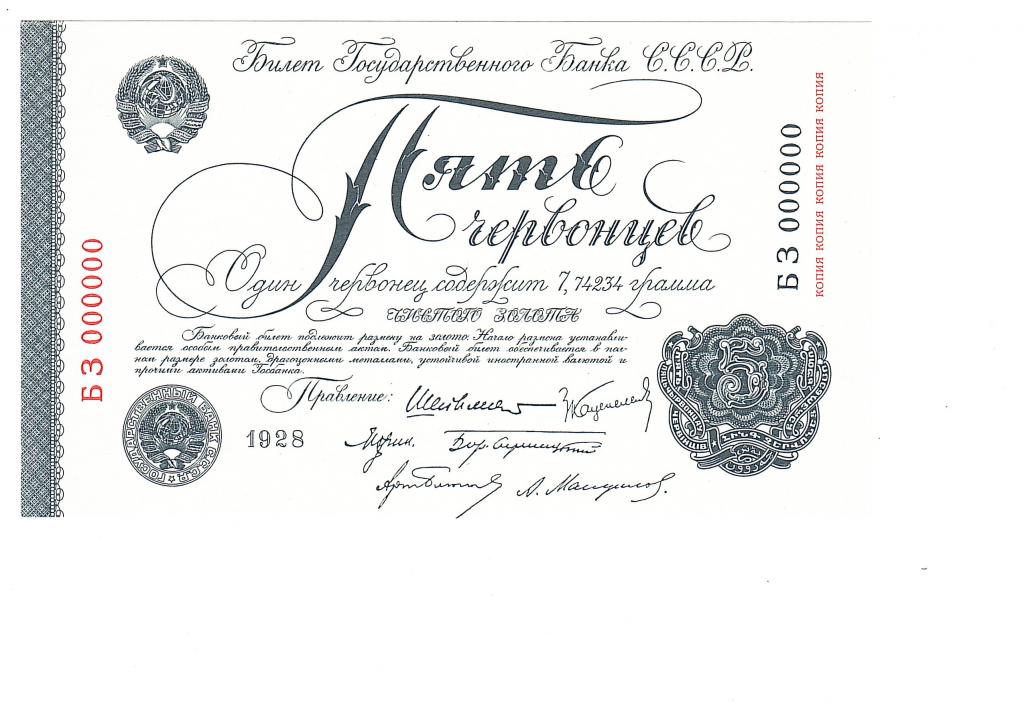 Билет Государственного Банка С.С.С.Р.
Пять
червонцев
Один червонец содержит 7,74234 грамма
чистого золота
Банковый билет подлежит размену на золото. Начало размена устанавли-
вается особым правительственным актом. Банковый билет обеспечивается в пол-
ном размере золотом, драгоценными металами, устойчивой иностранной валютой и
прочими активами Госбанка.
Правление:
1928
БЗ 000000
БЗ 000000
КОПИЯ КОПИЯ КОПИЯ КОПИЯ КОПИЯ КОПИЯ
ГОСУДАРСТВЕННЫЙ БАНК С.С.С.Р.
5